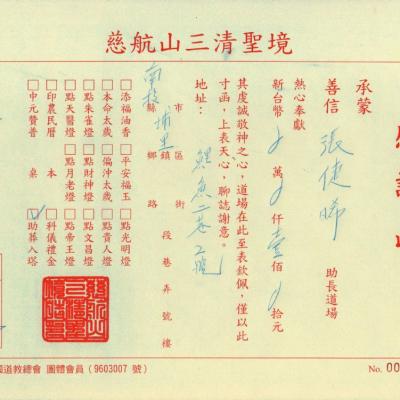 慈航山三清聖境
承蒙
善信 張使晞 助長道場
熱心奉獻
新台幣 萬 仟 壹 佰 拾元
其虔誠敬神之心,道場在此至表欽佩,僅以此
寸函,上表天心,聊誌謝意。
地址:南投縣市 埔里鄉鎮區 路街 鯉魚二巷2號 段巷弄號樓
□添福油香 □平安福玉 □點光明燈
□本命太歲 □偏沖太歲 □點貴人燈
□點朱雀燈 □點財神燈 □點文昌燈
□點天醫燈 □點月老燈 □點帝王燈
□印農民曆 本 □科儀禮金
□中元贊普 桌 ☑助葬入塔
道教總會 團體會員(9603007 號)
No. 00